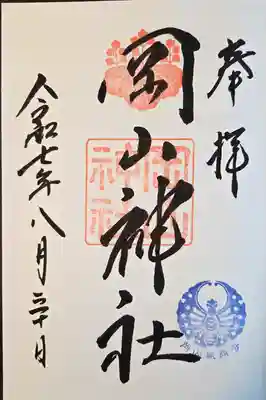 奉拝
岡山神社
岡山
神社
令和七年八月三十日